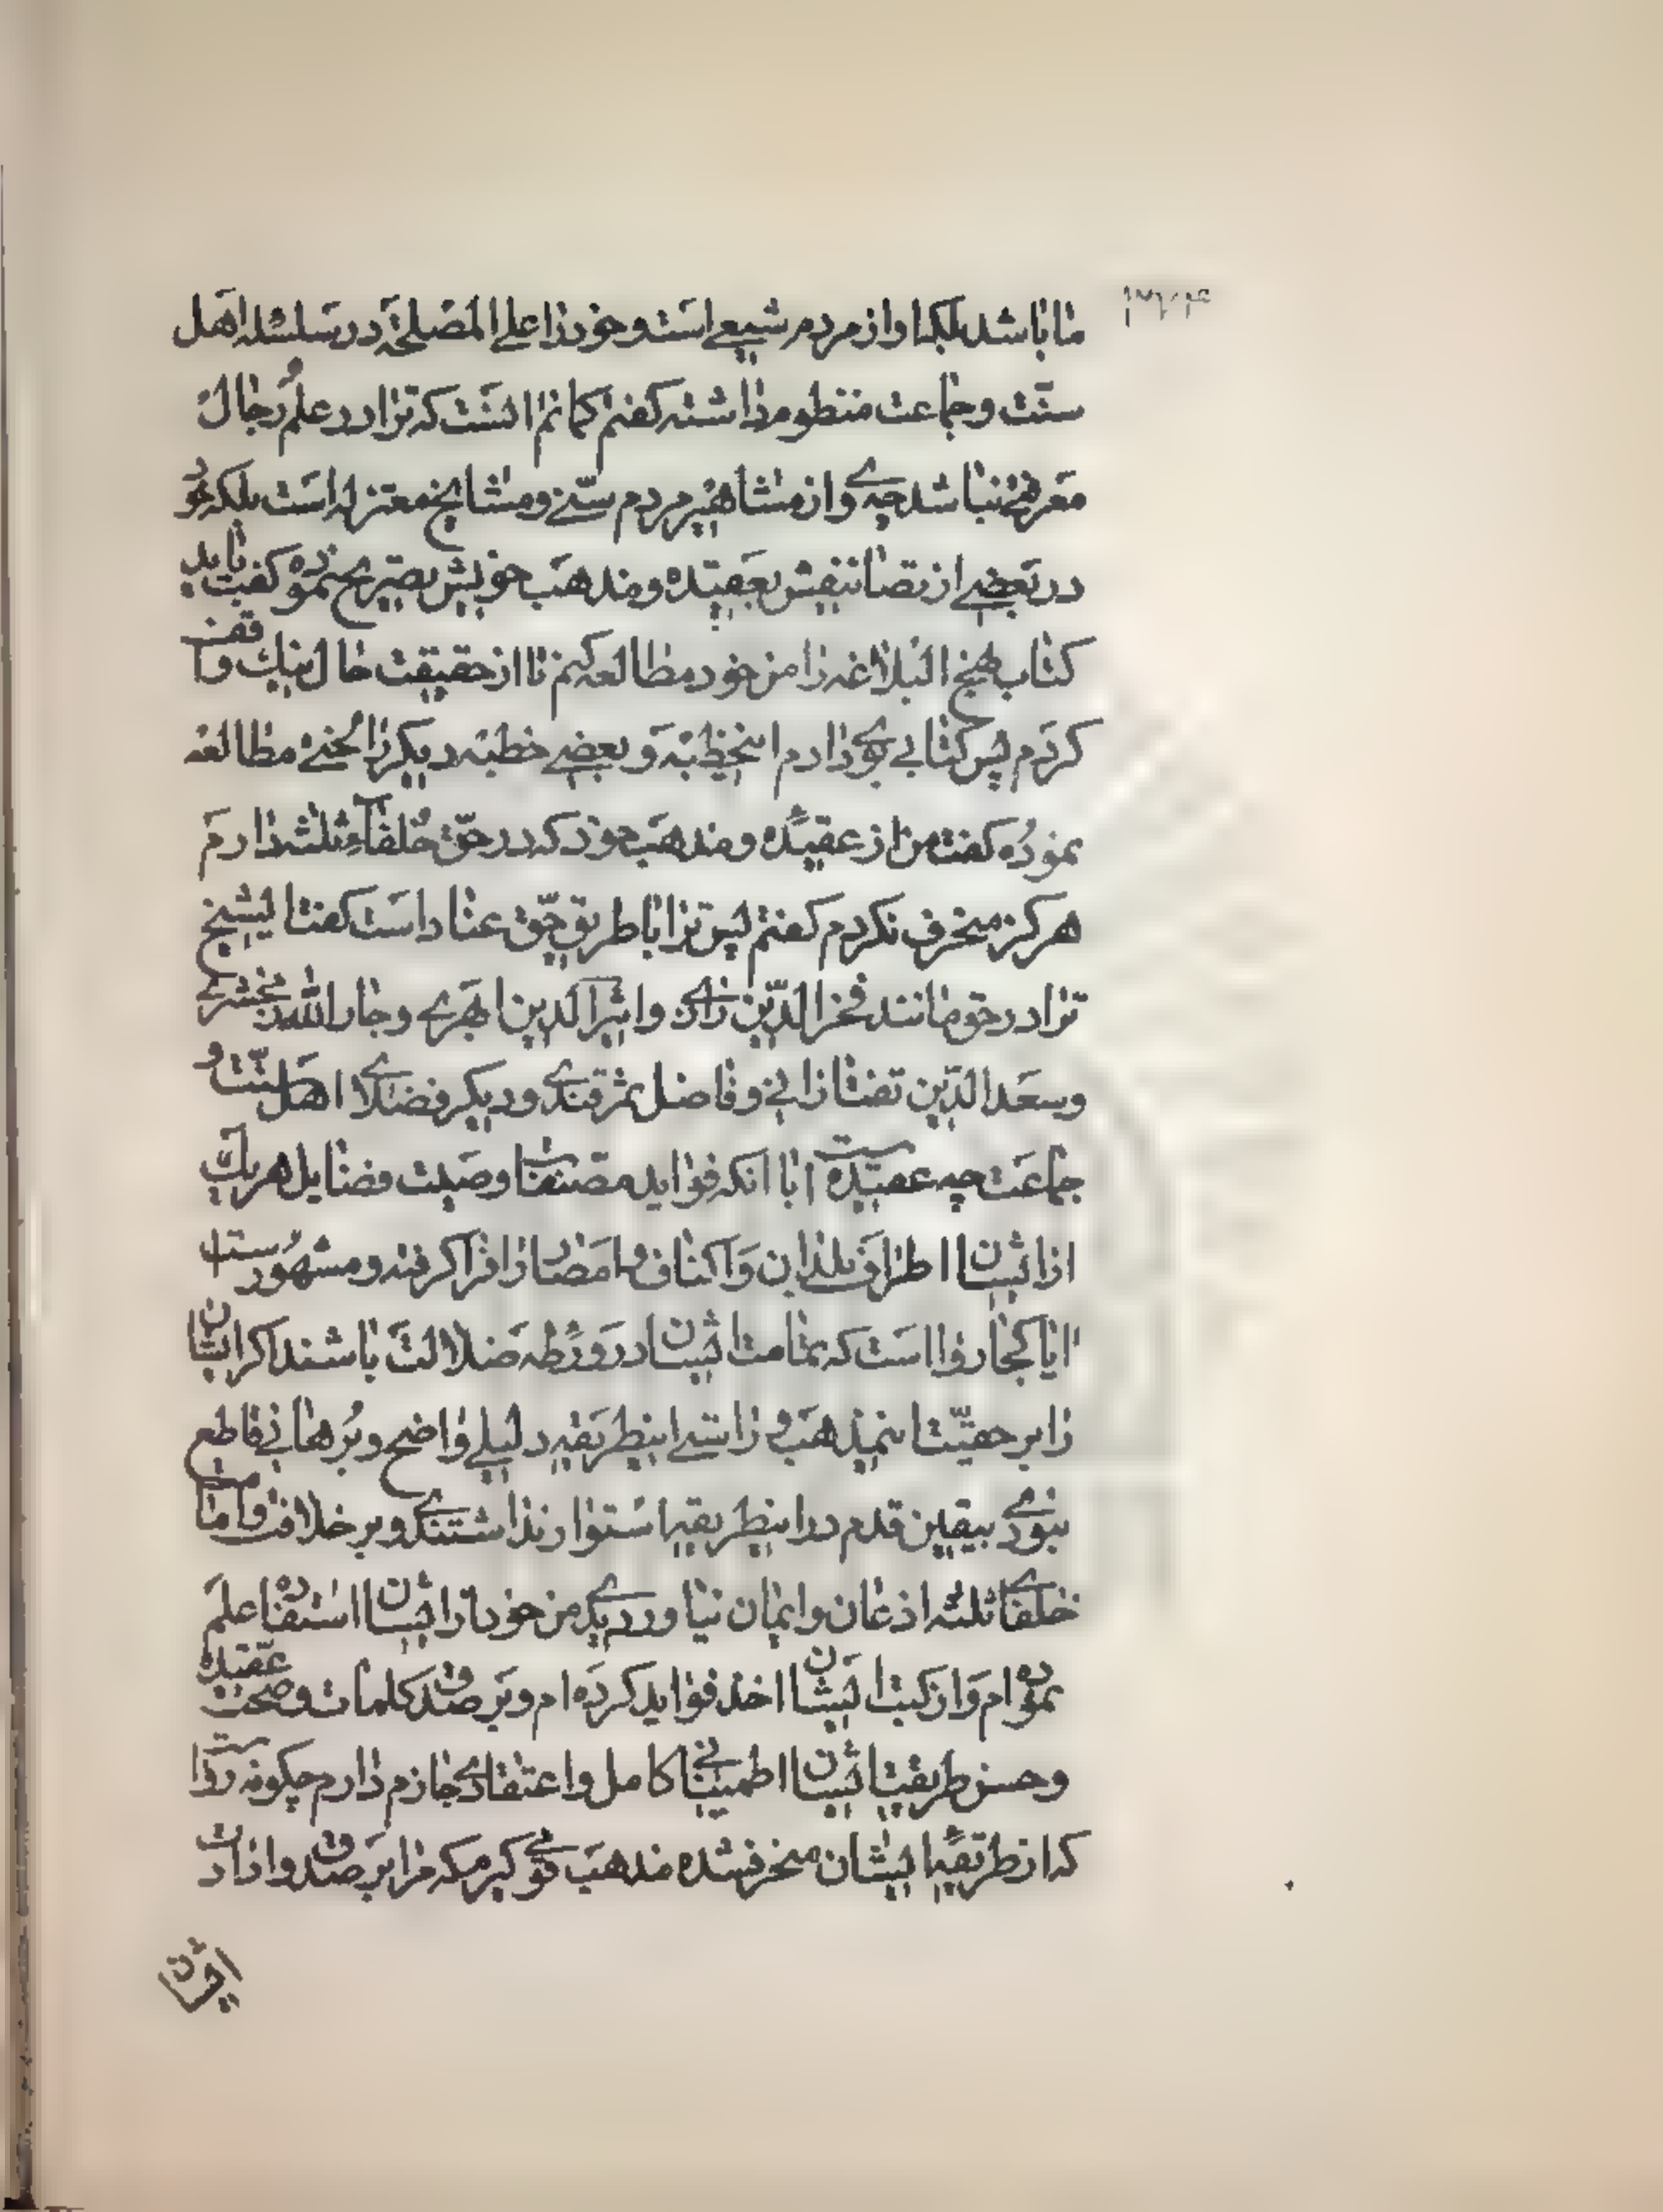 ما باشد بلکه او از مردم شیعی است و خود را علی المصلحة در سلسله اهل
سنّت و جماعت منظوم داشته گفتم گمانم اینست که ترا در علم رجال
معرفتی نباشد چه وی از مشاهیر مردم سنّی و مشایخ معتزله است بلکه خود
در بعضی از تصانیفش بعقیده و مذهب خویش تصریح نموده گفت باید
کتاب نهج البلاغه را من خود مطالعه کنم تا از حقیقت حال نیک واقف
کردم پس کتاب بوی دادم انخطبه و بعضی خطبه دیگر را لختی مطالعه
نموده گفت من از عقیده و مذهب خود که در حقّ خلفاء ثلثه دارم
هرگز منحرف نگردم گفتم پس ترا با طریق حقّ عناد است گفت ایشیخ
ترا در حق مانند فخر الدّین رازی و اثیر الدین ابهری و جار الله زمخشری
و سعد الدّین تفتازانی و فاضل سمرقندی و دیگر فضلای اهل سنّت و
جماعت چه عقیده است با آنکه فواید مصنفات و صیت فضایل هر یک
از ایشان اطراف بلدان و اکناف و امصار را فرا گرفته و مشهور است
ایا کجا روا است که تمامت ایشان در ورطه ضلالت باشند اگر ایشان
را بر حقیّت اینمذهب و راستی اینطریقه دلیلی واضح و برهانی قاطع
نبودی بیقین قدم در اینطریقه استوار نداشتندی و بر خلافت و امامت
خلفای ثلثه اذعان و ایمان نیاوردندی من خود از ایشان استفاده علم
نموده ام و از کتب ایشان اخذ فواید کرده ام و بر صدق کلمات و صحت عقیده
و حسن طریقت ایشان اطمینانی کامل و اعتقادی جازم دارم چگونه روا است
که از طریقه ایشان منحرف شده مذهب قومی گیرم که مرا بر صدق و ارادت